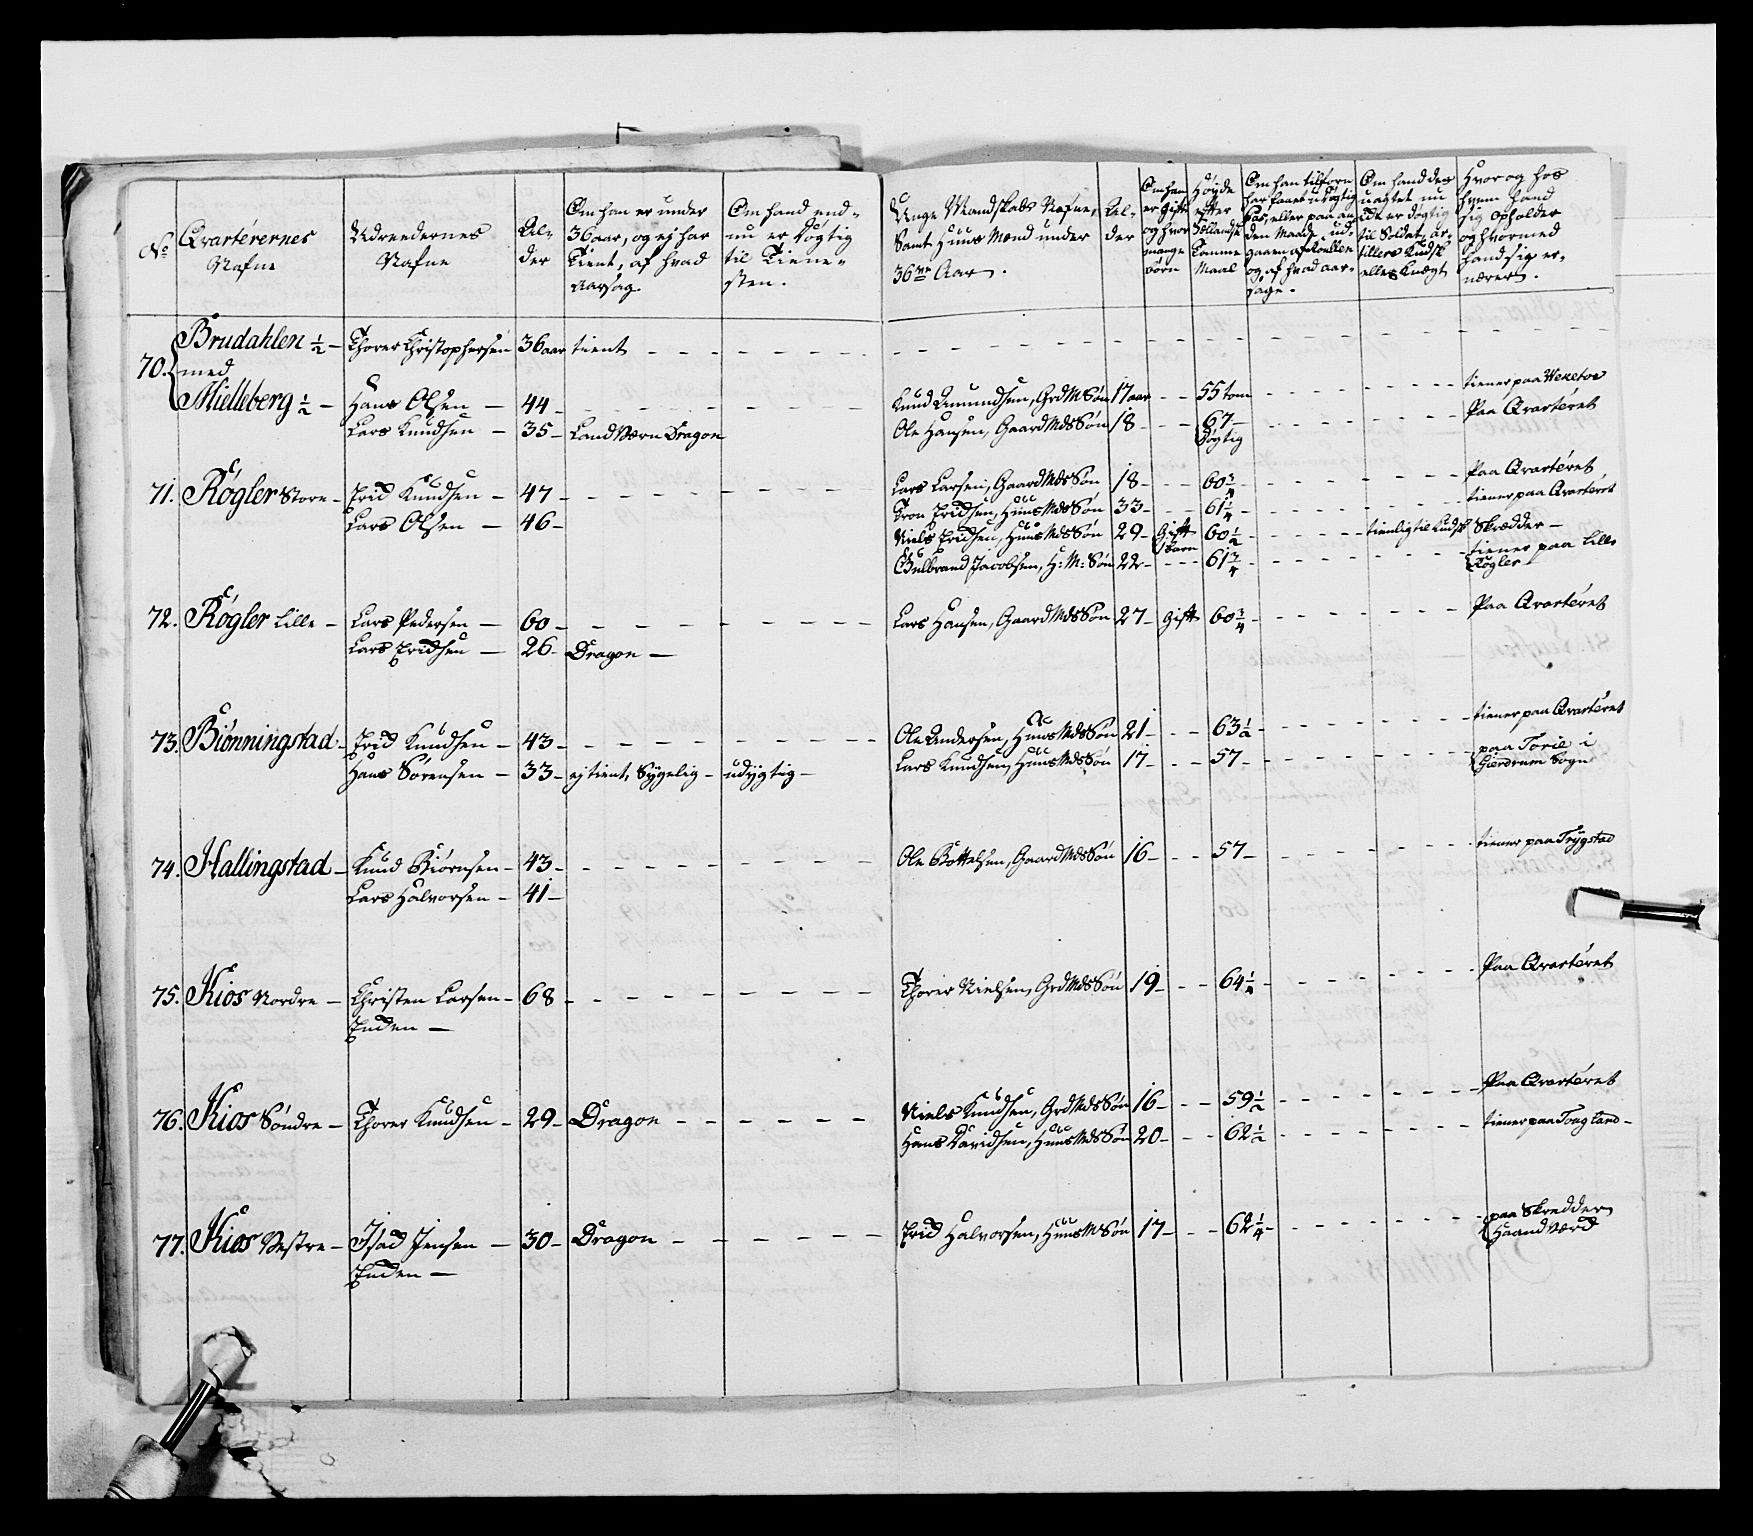 No
Qvarterernes
Nafne
Udreedernes
Nafne
Al-
der
Om han er under
36 aar, og ej har
tient, af hvad
Aarsag.
Om hand end-
nu er dygtig
til Tiene-
sten.
Unge Mandskabs Nafne,
Samt Huus Mænd under
36te Aar.
Al-
der
Om han
er gift
og hvor
mange
børn
Høyde
efter
Sællandsk
Tomme
Maal
Om han tilforn
har faaet udygtig
Pas, eller paa an-
den Maade ud-
gaaen af Roullen
og af hvad aar-
sage.
Om hand des
uagtet nu
er døgtig
til Soldat, ar-
tillerie Kudsk
eller Knægt
Hvor og hos
hvem hand
sig opholder
og hvormed
hand sig er-
nærer.
70. Brudahlen ½ - Thorer Christophersen 36 aar tient
med
Mielleberg ½ - Hans Olsen - 44 - Knud Amundsen, Grd M Søn 17 aar - - 55 tom tiener paa
Lars Knudsen - 35 - Land Værn Dragon Ole Hansen, Gaard Mds Søn 18 - - 67 - Paa Qvarteret
Døgtig
71. Røgler Store - Erid Knudsen - 47 - Lars Larsen, Gaard Mds Søn 18 - - 60 ¾ - Paa Qvarteret
Lars Olsen - 46 - Tron Eridsen, Huus Mds Søn 33 - - 61 ¼ - tiener paa Qvarteret
Niels Eridsen, Huus Mds Søn 29 - Gift 60 ½ - tienlig til Kudsk Skrædder -
1 barn
Gulbrand Jacobsen, H: M: Søn 22 - - - 61 ¾ tiener paa Lille
Røgler
72. Røgler Lille - Lars Pedersen - 60 - Lars Hansen, Gaard Mds Søn 27 - Gift 60 ¾ - Paa Qvarteret
Lars Eridsen - 26 - Dragon -
73. Biønningstad - Erid Knudsen - 43 - Ole Andersen, Huus Mds Søn 21 - - 63 ½ - tiener paa Qvarteret
Hans Sørensen - 33 - ej tient, Sygelig - udygtig - Lars Knudsen, Huus Mds Søn 17 - - 57 - paa i
Gierdrum Sogn
74. Hallingstad - Knud Biørnsen - 43 - Ole Bottelsen, Gaard Mds Søn 16 - - 57 - tiener paa Trygstad
Lars Halvorsen - 41 -
75. Kios Nordre - Christen Larsen - 68 - Thorer Nielsen, Grd Mds Søn 19 - - 64 ¼ - Paa Qvarteret
Enden -
76. Kios Søndre - Thorer Knudsen - 29 - Dragon - Niels Knudsen, Grd Mds Søn 16 - - 59 ½ - Paa Qvarteret
Hans Davidsen, Huus Mds Søn 20 - - 62 ½ - tiener paa
77. Kios Vestre - Isad Jensen - 30 - Dragon - Erid Halvorsen, Huus M Søn 17 - - 62 ¼ - paa Skredder
Haand Værd
Enden -